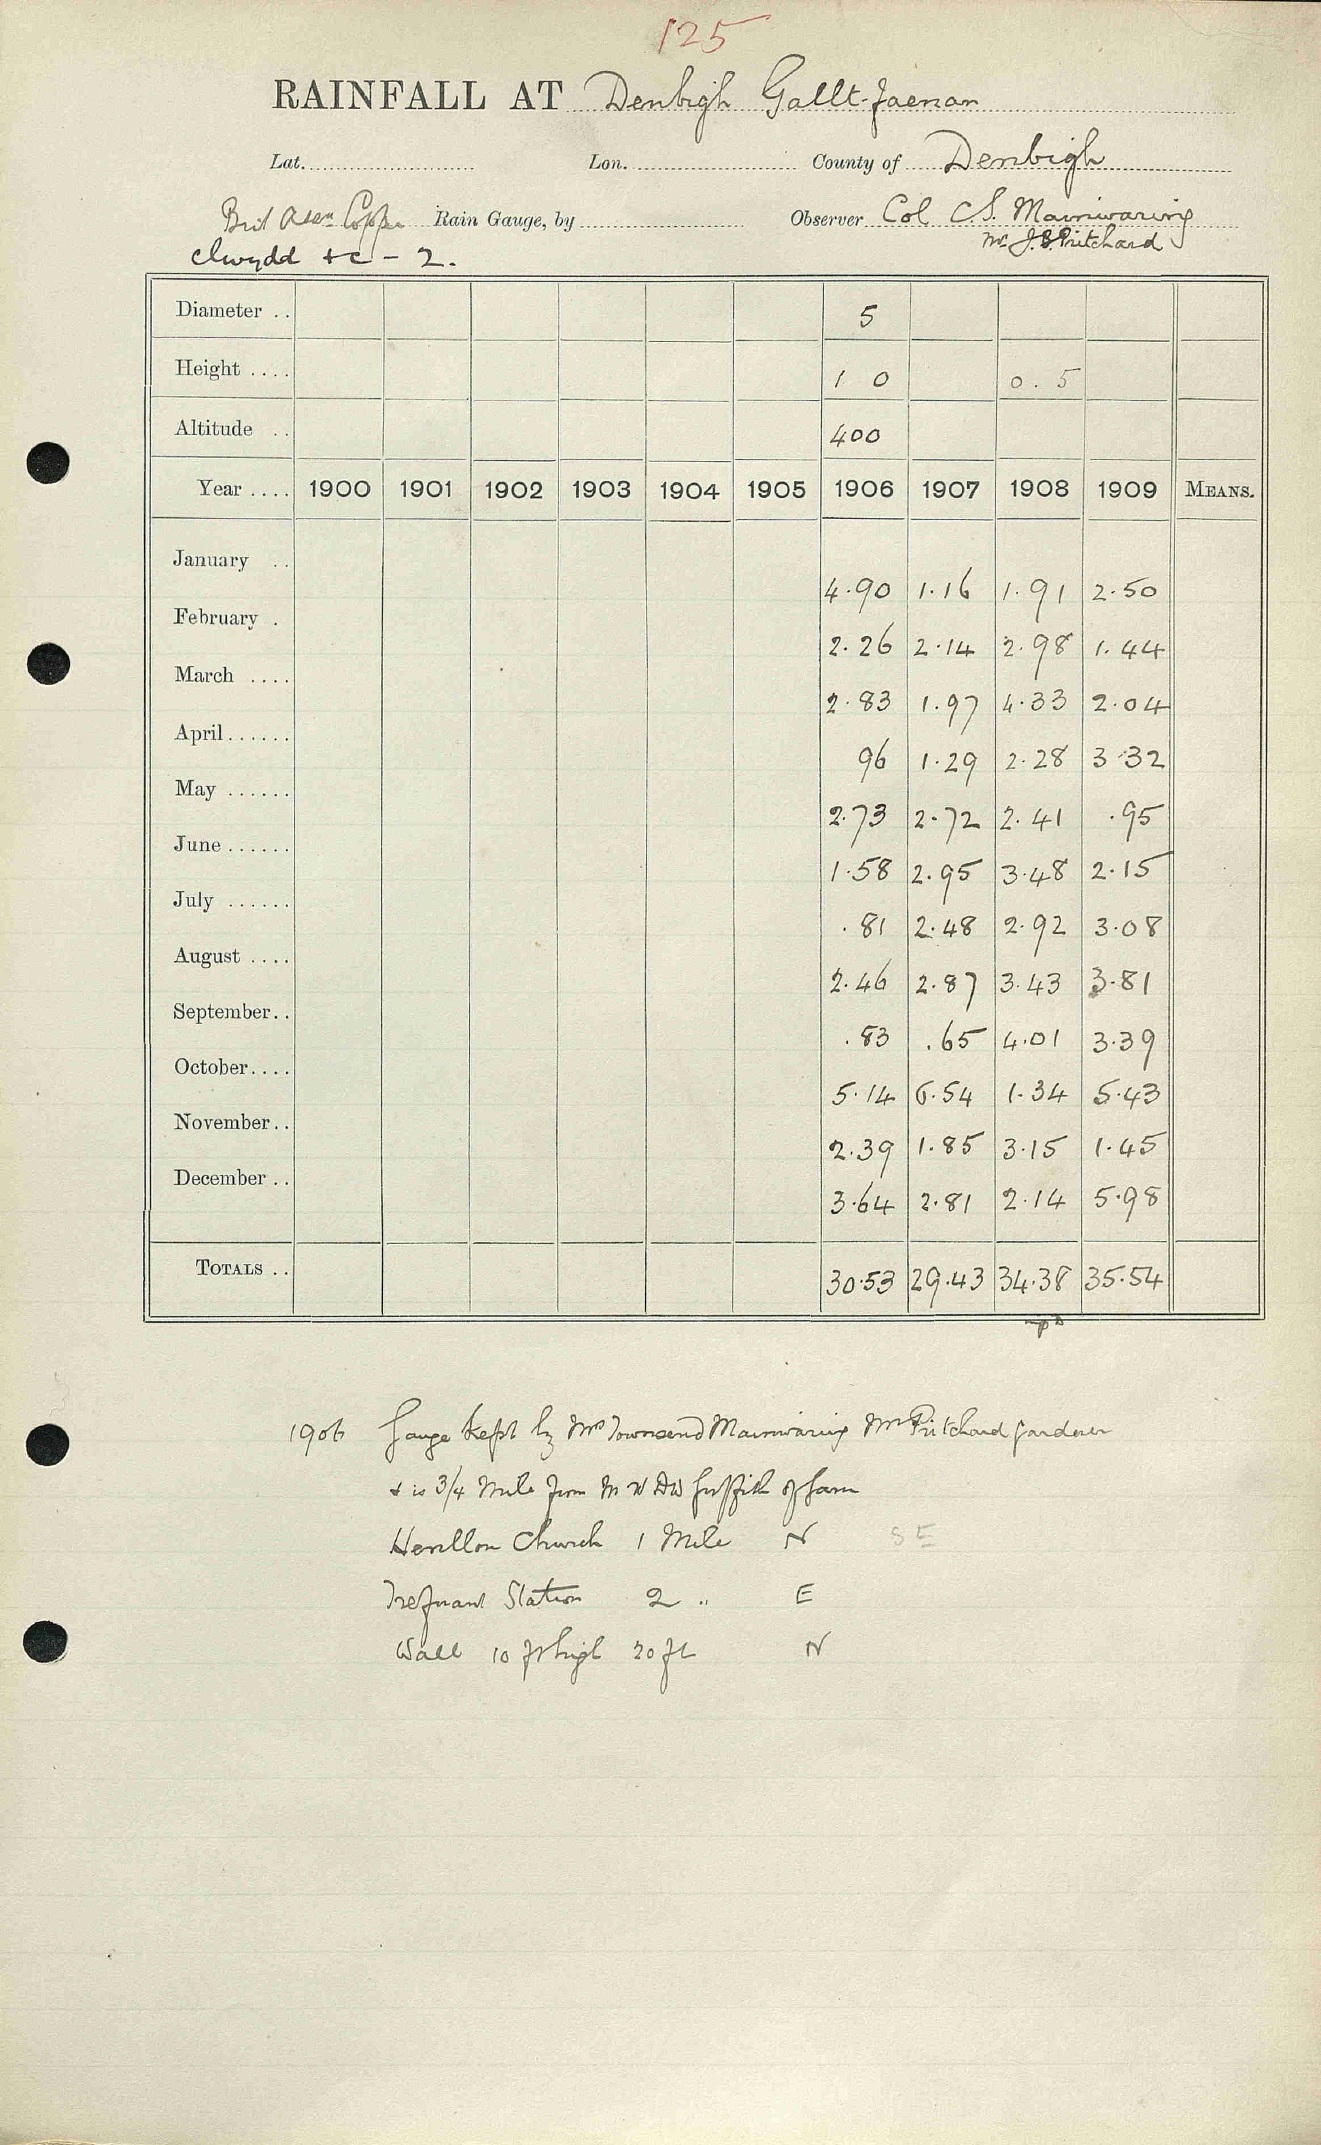 125
RAINFALL AT Denbigh Gallt-faenan
Lat. Lon. County of Denbigh
Brit Assn Copper Rain Gauge, by Observer Col C.S. Mainwaring
Mr J.S. Pritchard
Clwydd &c - 2.
Diameter .. 5
Height .... 1 0 0.5
Altitude .. 400
Year .... 1900 1901 1902 1903 1904 1905 1906 1907 1908 1909 MEANS.
January .. 4.90 1.16 1.91 2.50
February . 2.26 2.14 2.98 1.44
March .... 2.83 1.97 4.33 2.04
April...... 96 1.29 2.28 3.32
May ...... 2.73 2.72 2.41 .95
June ...... 1.58 2.95 3.48 2.15
July ...... .81 2.48 2.92 3.08
August .... 2.46 2.87 3.43 3.81
September.. .83 .65 4.01 3.39
October.... 5.14 6.54 1.34 5.43
November.. 2.39 1.85 3.15 1.45
December .. 3.64 2.81 2.14 5.98
TOTALS .. 30.53 29.43 34.38 35.54
1906 Gauge kept by Mrs Townsend Mainwaring Mr Pritchard gardener
& is 3/4 Mile from M W D W Griffith of Garn
Henllan Church 1 Mile N S E
Trefnant Station 2 " E
Wall 10 ft high 20 ft N